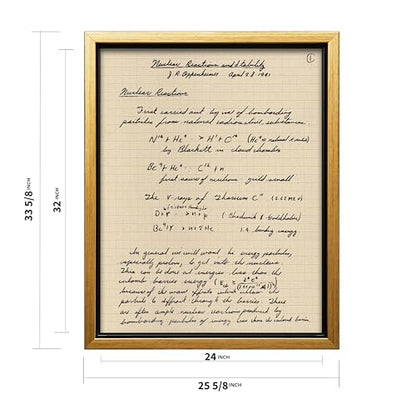 1
Nuclear Reactions and Stability
J. R. Oppenheimer April 28 1941
Nuclear Reactions
First carried out by use of bombarding
particles from natural radioactive substances.
N¹⁴ + He⁴ → H¹ + O¹⁷ (He⁴ = natural α rays)
by Blackett in cloud chamber
Be⁹ + He⁴ C¹² + n
first source of neutrons yield small
The γ rays of Thorium C" (2.62 mev)
D + γ → n + p (Chadwick & Goldhaber)
Be⁹ + γ → n + 2 He binding energy
In general we will want hi energy particles,
especially protons, to get into the nucleus.
This can be done at energies less than the
coulomb barrier energy
because of the wave effects which allow the
particle to diffract through the barrier. There
are often ample nuclear reactions produced by
bombarding particles of energy less than the coulomb barrier.
33 5/8 INCH
32 INCH
24 INCH
25 5/8 INCH